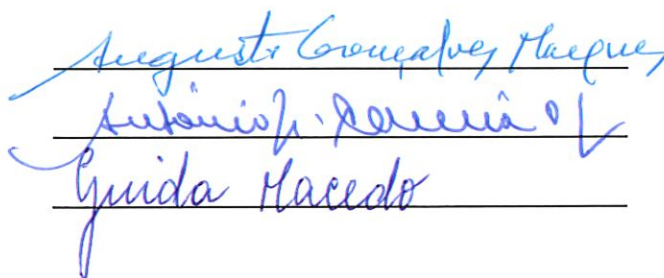 Augusto Gonçalves Marques
António
Guida Macedo